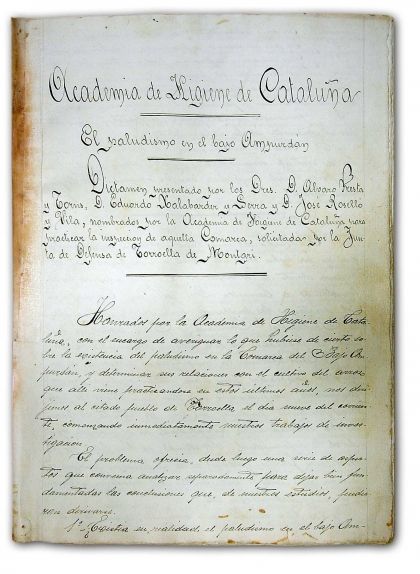 Academia de Higiene de Cataluña
El paludismo en el bajo Ampurdán
Dictamen presentado por los Dres. D. Alvaro Presta
y Torns, D. Eduardo Xalabarder y Serra y D. José Roselló
y Vila, nombrados por la Academia de Higiene de Cataluña para
practicar la inspeccion de aquella Comarca, solicitada por la Jun-
ta de Defensa de Torroella de Montgrí.
Honrados por la Academia de Higiene de Cata-
luña, con el encargo de averiguar lo que hubiese de cierto so-
bre la existencia del paludismo en la Comarca del Bajo Am-
purdán, y determinar sus relaciones con el cultivo del arroz
que allí viene practicandose en estos últimos años, nos diri-
jimos al citado pueblo de Torroella el dia nueve del corrien-
te, comenzando inmediatamente nuestros trabajos de inves-
tigacion.
El problema ofrecia, desde luego una serie de aspec-
tos que convenia analizar separadamente para dejar bien fun-
damentadas las conclusiones que, de nuestros estudios, pudie-
ran derivarse.
1º Existia en realidad, el paludismo en el bajo Am-